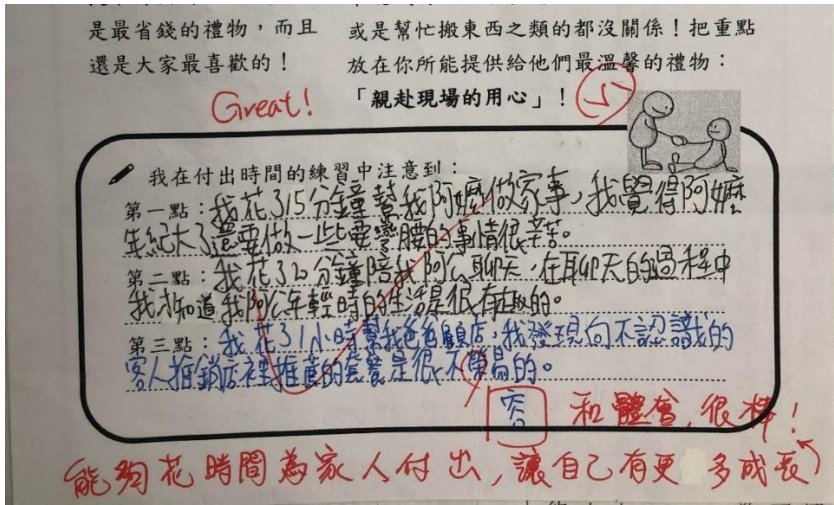 是最省錢的禮物，而且
還是大家最喜歡的！
或是幫忙搬東西之類的都沒關係！把重點
放在你所能提供給他們最溫馨的禮物：
「親赴現場的用心」！
Great!
我在付出時間的練習中注意到：
第一點：我花了15分鐘幫我阿嬤做家事，我覺得阿嬤
年紀大了還要做一些要彎腰的事情很辛苦。
第二點：我花了20分鐘陪我阿公聊天，在聊天的過程中
我才知道我阿公年輕時的生活是很有趣的。
第三點：我花了1小時幫我爸爸顧店，我發現向不認識我的
客人推銷店裡推薦的套餐是很不易的。
容
和體會，很棒！
能夠花時間為家人付出，讓自己有更多成長